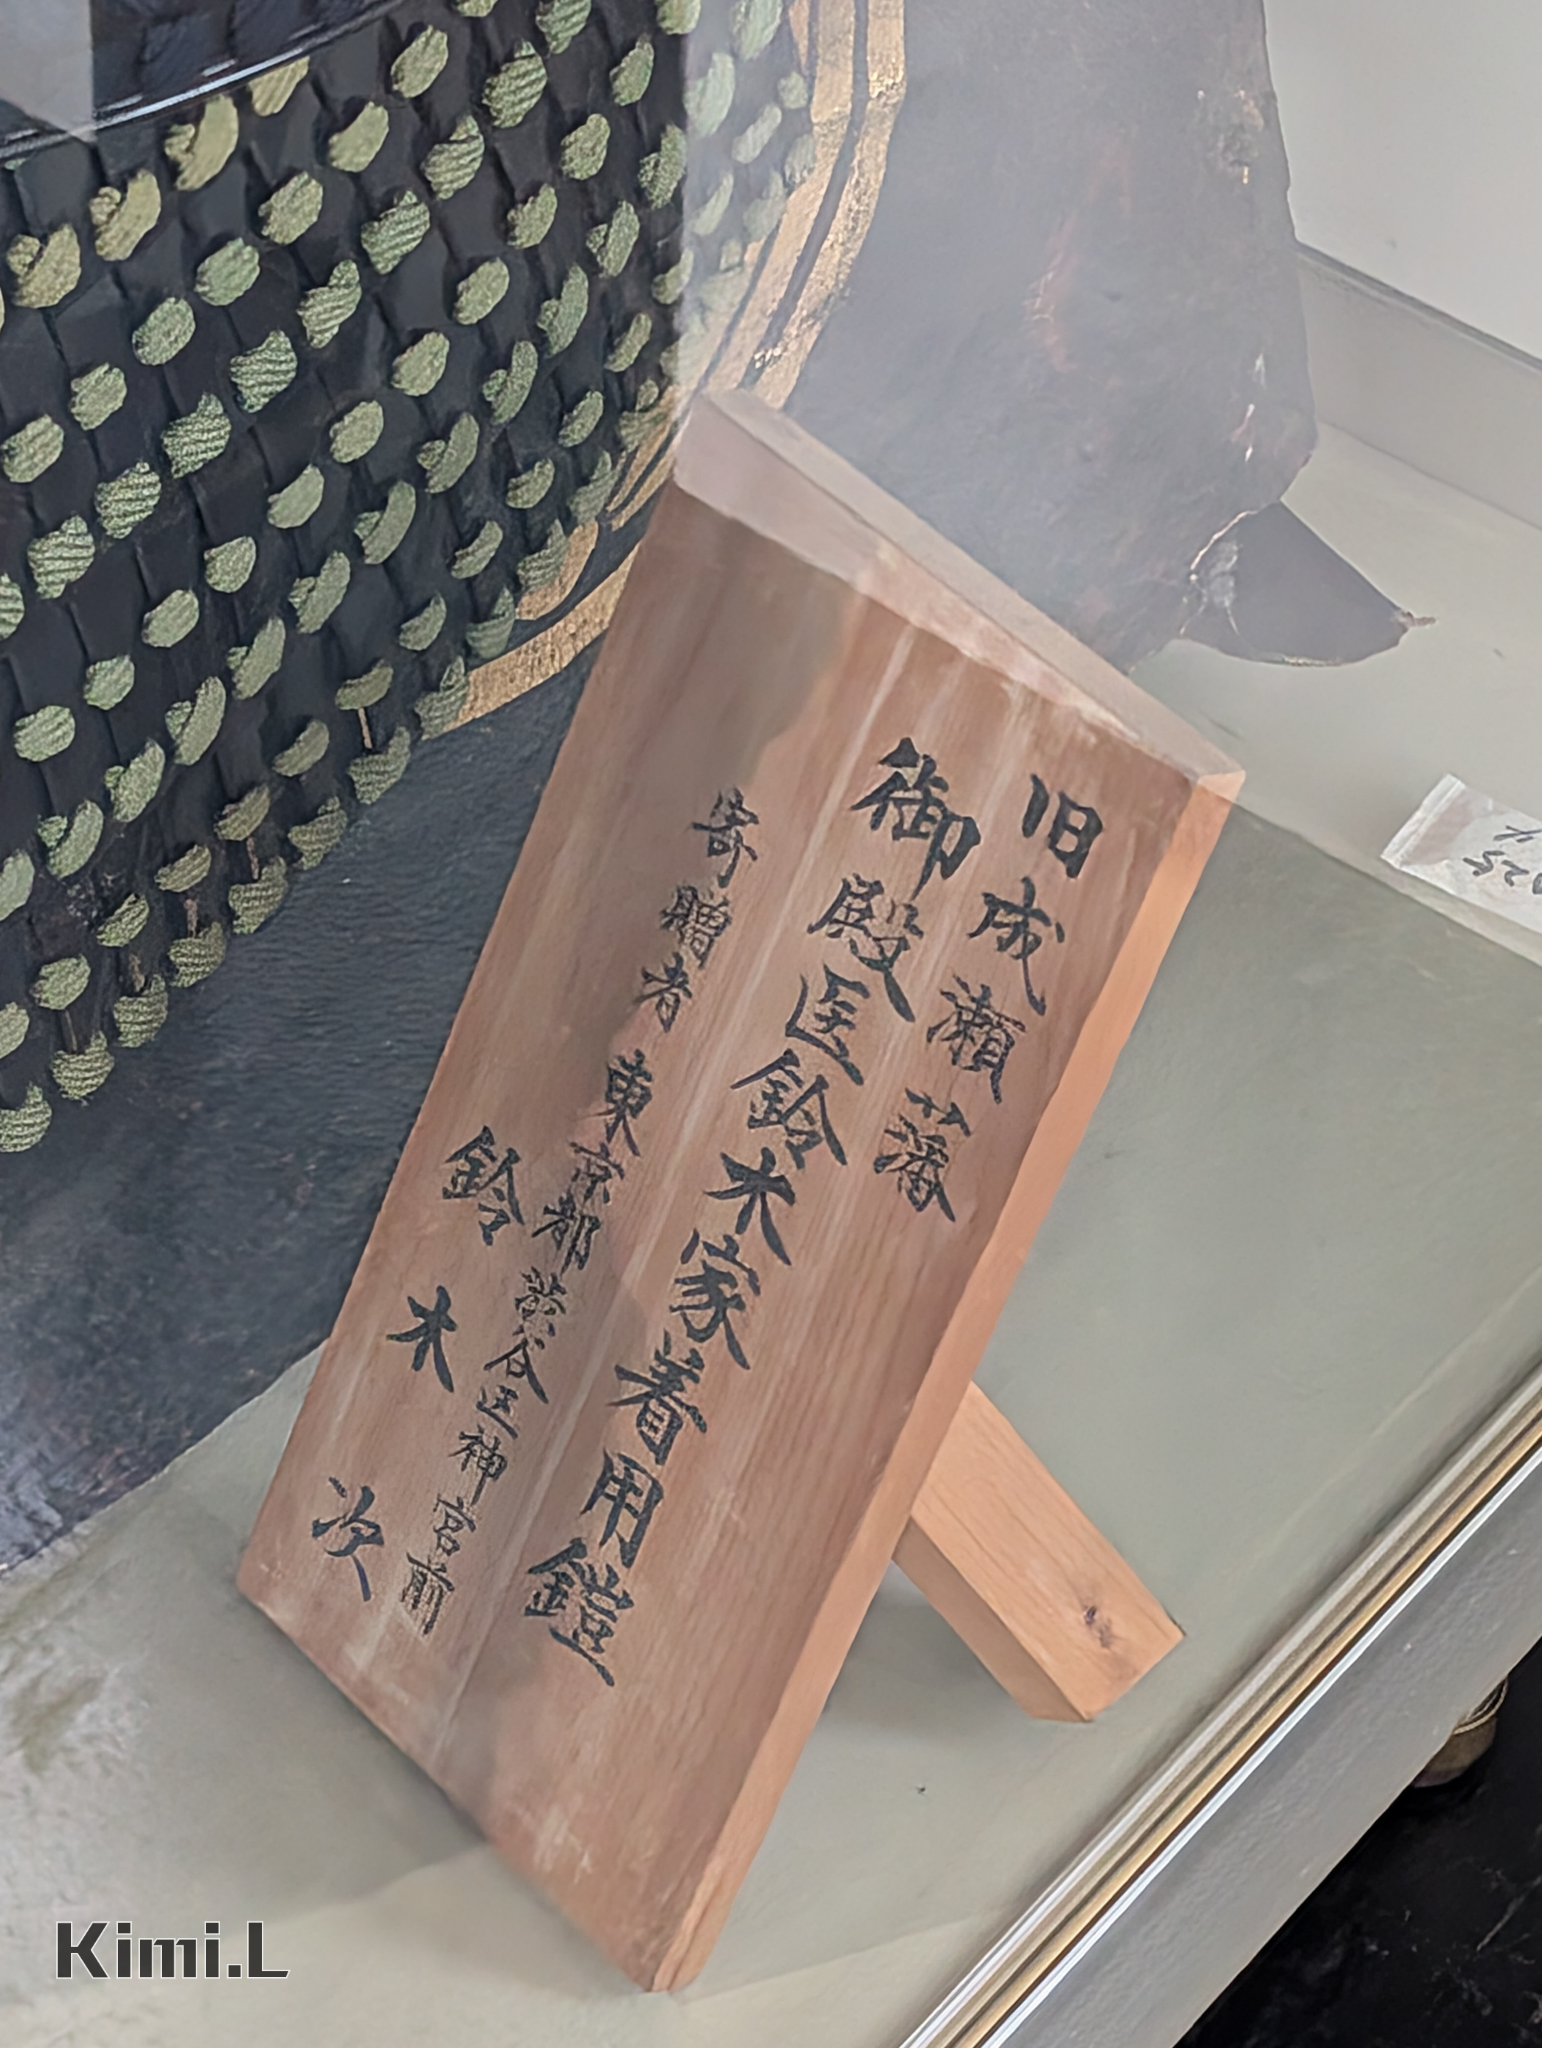 旧成瀬藩
御殿医鈴木家着用鎧
寄贈者 東京都渋谷区神宮前
鈴木次
Kimi.L